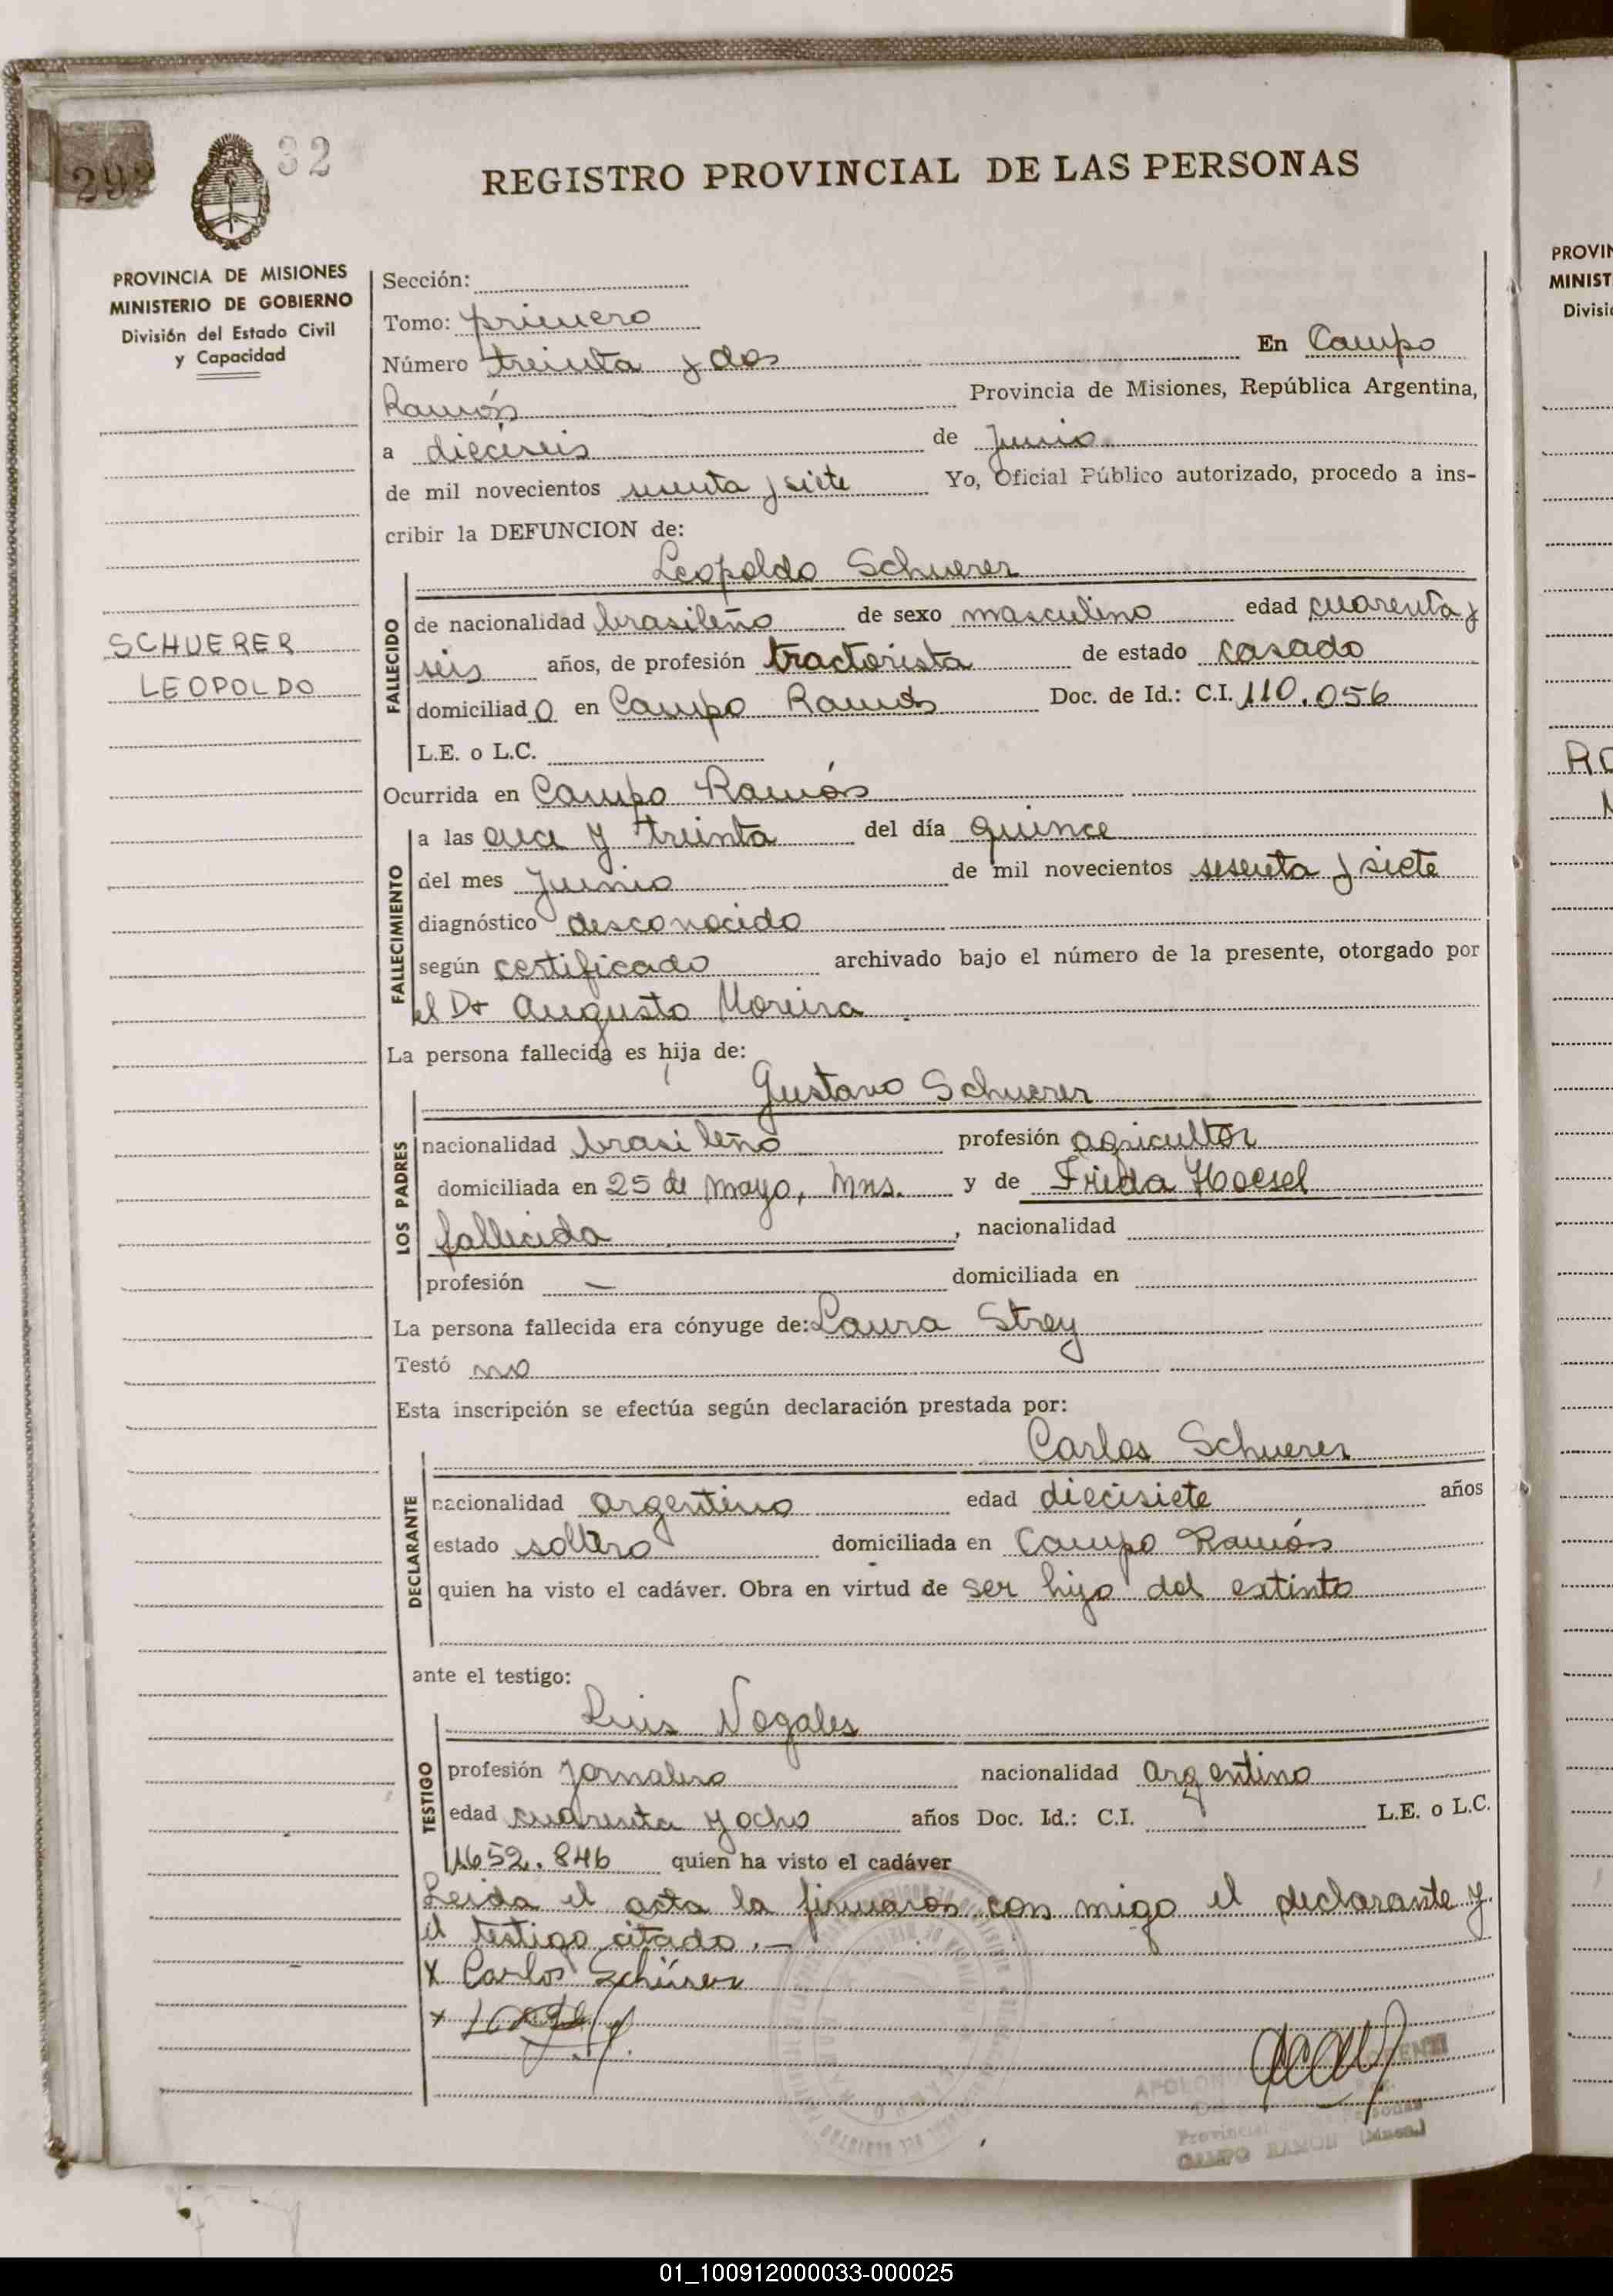 292
32
REGISTRO PROVINCIAL DE LAS PERSONAS
PROVINCIA DE MISIONES
MINISTERIO DE GOBIERNO
División del Estado Civil
y Capacidad
SCHUERER
LEOPOLDO
Sección:
Tomo: primero
Número treinta y dos En Campo
Ramón Provincia de Misiones, República Argentina,
a dieciseis de Junio
de mil novecientos sesenta y siete Yo, Oficial Público autorizado, procedo a ins-
cribir la DEFUNCION de:
Leopoldo Schuerer
FALLECIDO
de nacionalidad brasileño de sexo masculino edad cuarenta y
seis años, de profesión tractorista de estado casado
domiciliado en Campo Ramón Doc. de Id.: C.I. 110.056
L.E. o L.C.
Ocurrida en Campo Ramón
FALLECIMIENTO
a las once y treinta del día quince
del mes Junio de mil novecientos sesenta y siete
diagnóstico desconocido
según certificado archivado bajo el número de la presente, otorgado por
el Dr Augusto Moreira
La persona fallecida es hija de:
Gustavo Schuerer
LOS PADRES
nacionalidad brasileño profesión agricultor
domiciliada en 25 de Mayo, Mns. y de Frida Hoesel
fallecida, nacionalidad
profesión — domiciliada en
La persona fallecida era cónyuge de: Laura Strey
Testó no
Esta inscripción se efectúa según declaración prestada por:
Carlos Schuerer
DECLARANTE
nacionalidad argentino edad diecisiete años
estado soltero domiciliada en Campo Ramón
quien ha visto el cadáver. Obra en virtud de ser hijo del extinto
ante el testigo:
Luis Nogales
TESTIGO
profesión Jornalero nacionalidad argentino
edad cuarenta y ocho años Doc. Id.: C.I. L.E. o L.C.
1652.846 quien ha visto el cadáver
Leida el acta la firmaron con migo el declarante y
el testigo citado.—
X Carlos Schüerer
X
Provincial
CAMPO RAMON (Mnes.)
PROVIN
MINIST
Divisió
RO
01_100912000033-000025